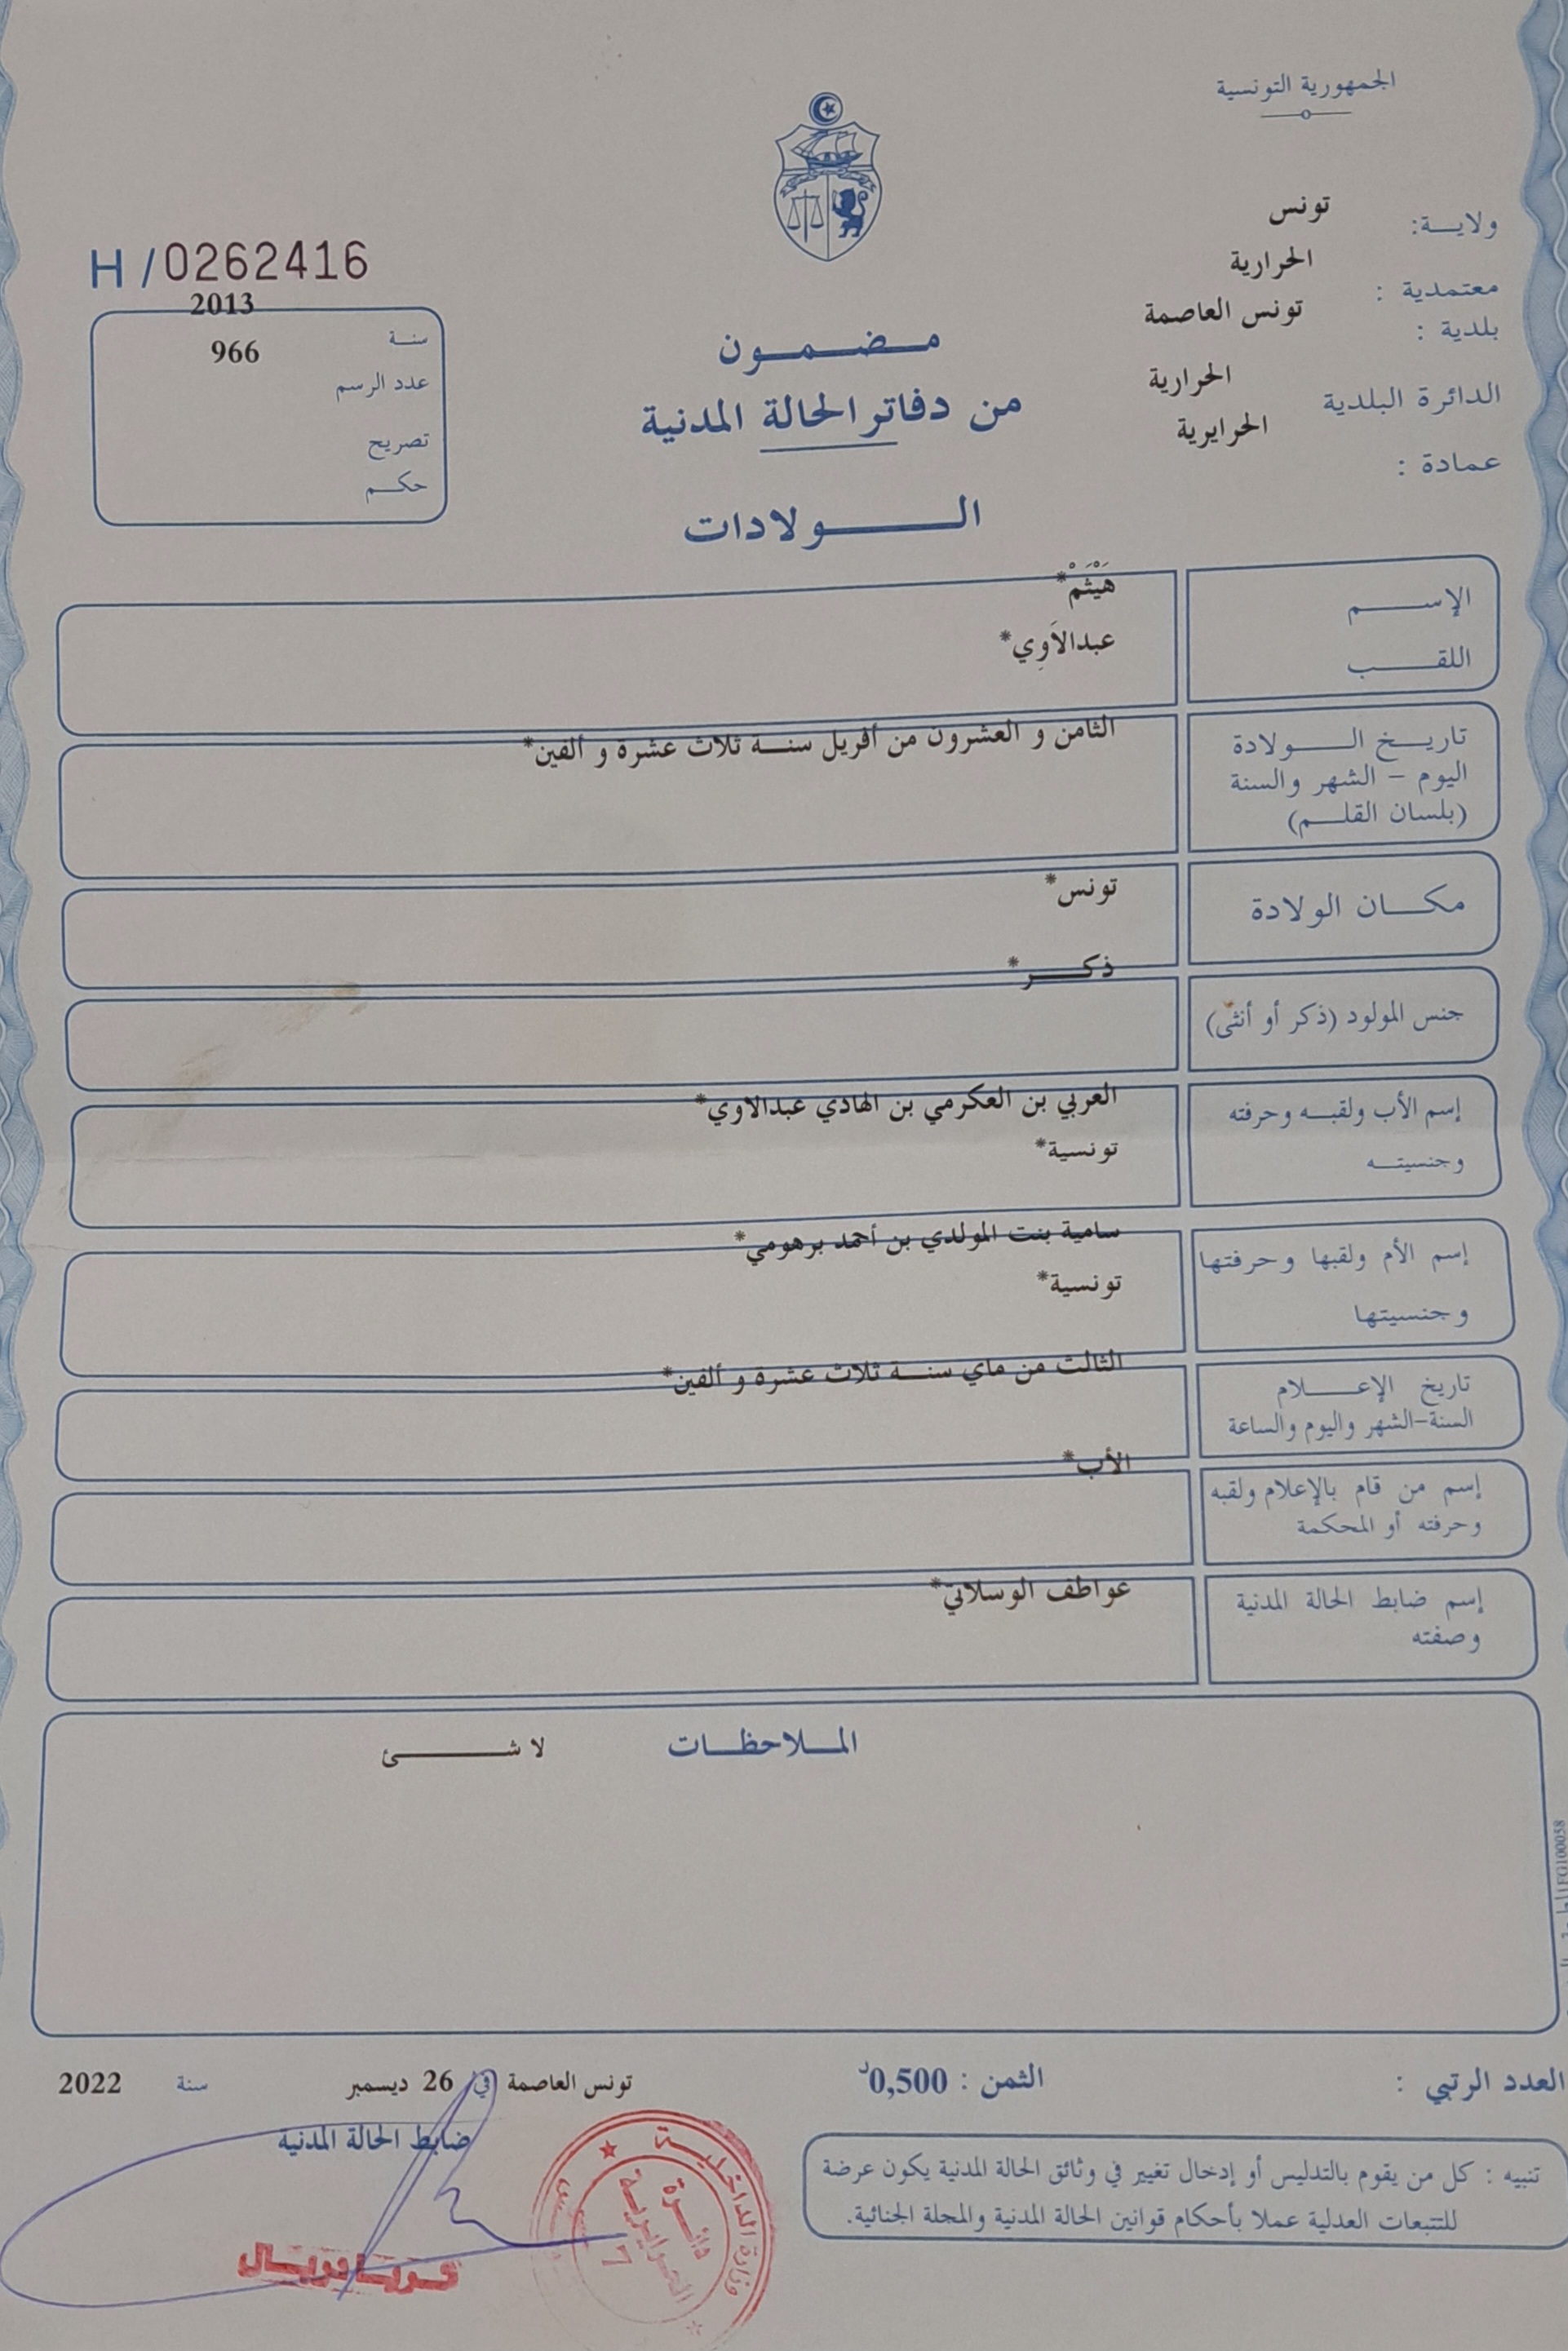 الجمهورية التونسية
ولايـــة: تونس
معتمدية : الحرارية
بلدية : تونس العاصمة
الدائرة البلدية الحرارية
عمادة : الحرايرية
H / 0262416
سنـة 2013
عدد الرسم 966
تصريح
حكـــم
مـــضـــمـــون
من دفاتر الحالة المدنية
الـــــولادات
الإســـــم هَيْثَمْ*
اللقـــــب عبدالاَوِي*
تاريـــخ الـــــولادة الثامن و العشرون من أفريل سنـــة ثلاث عشرة و ألفين*
اليوم - الشهر والسنة
(بلسان القلـــم)
مكـــان الولادة تونس*
جنس المولود (ذكر أو أنثى) ذكـــر*
إسم الأب ولقبـــه وحرفته العربي بن العكرمي بن الهادي عبدالاوي*
وجنسيتـــه تونسية*
إسم الأم ولقبها وحرفتها سامية بنت المولدي بن أحمد برهومي*
وجنسيتها تونسية*
تاريخ الإعـــــلام الثالث من ماي سنـــة ثلاث عشرة و ألفين*
السنة-الشهر واليوم والساعة
إسم من قام بالإعلام ولقبه الأب*
وحرفته أو المحكمة
إسم ضابط الحالة المدنية عواطف الوسلاتي*
وصفته
المـــلاحظـــات لا شـــــئ
العدد الرتبي :
الثمن : 0,500د
تونس العاصمة في 26 ديسمبر سنة 2022
ضابط الحالة المدنية
تنبيه : كل من يقوم بالتدليس أو إدخال تغيير في وثائق الحالة المدنية يكون عرضة
للتتبعات العدلية عملا بأحكام قوانين الحالة المدنية والمجلة الجنائية.
وزارة الداخلية
دائرة
الحرايرية